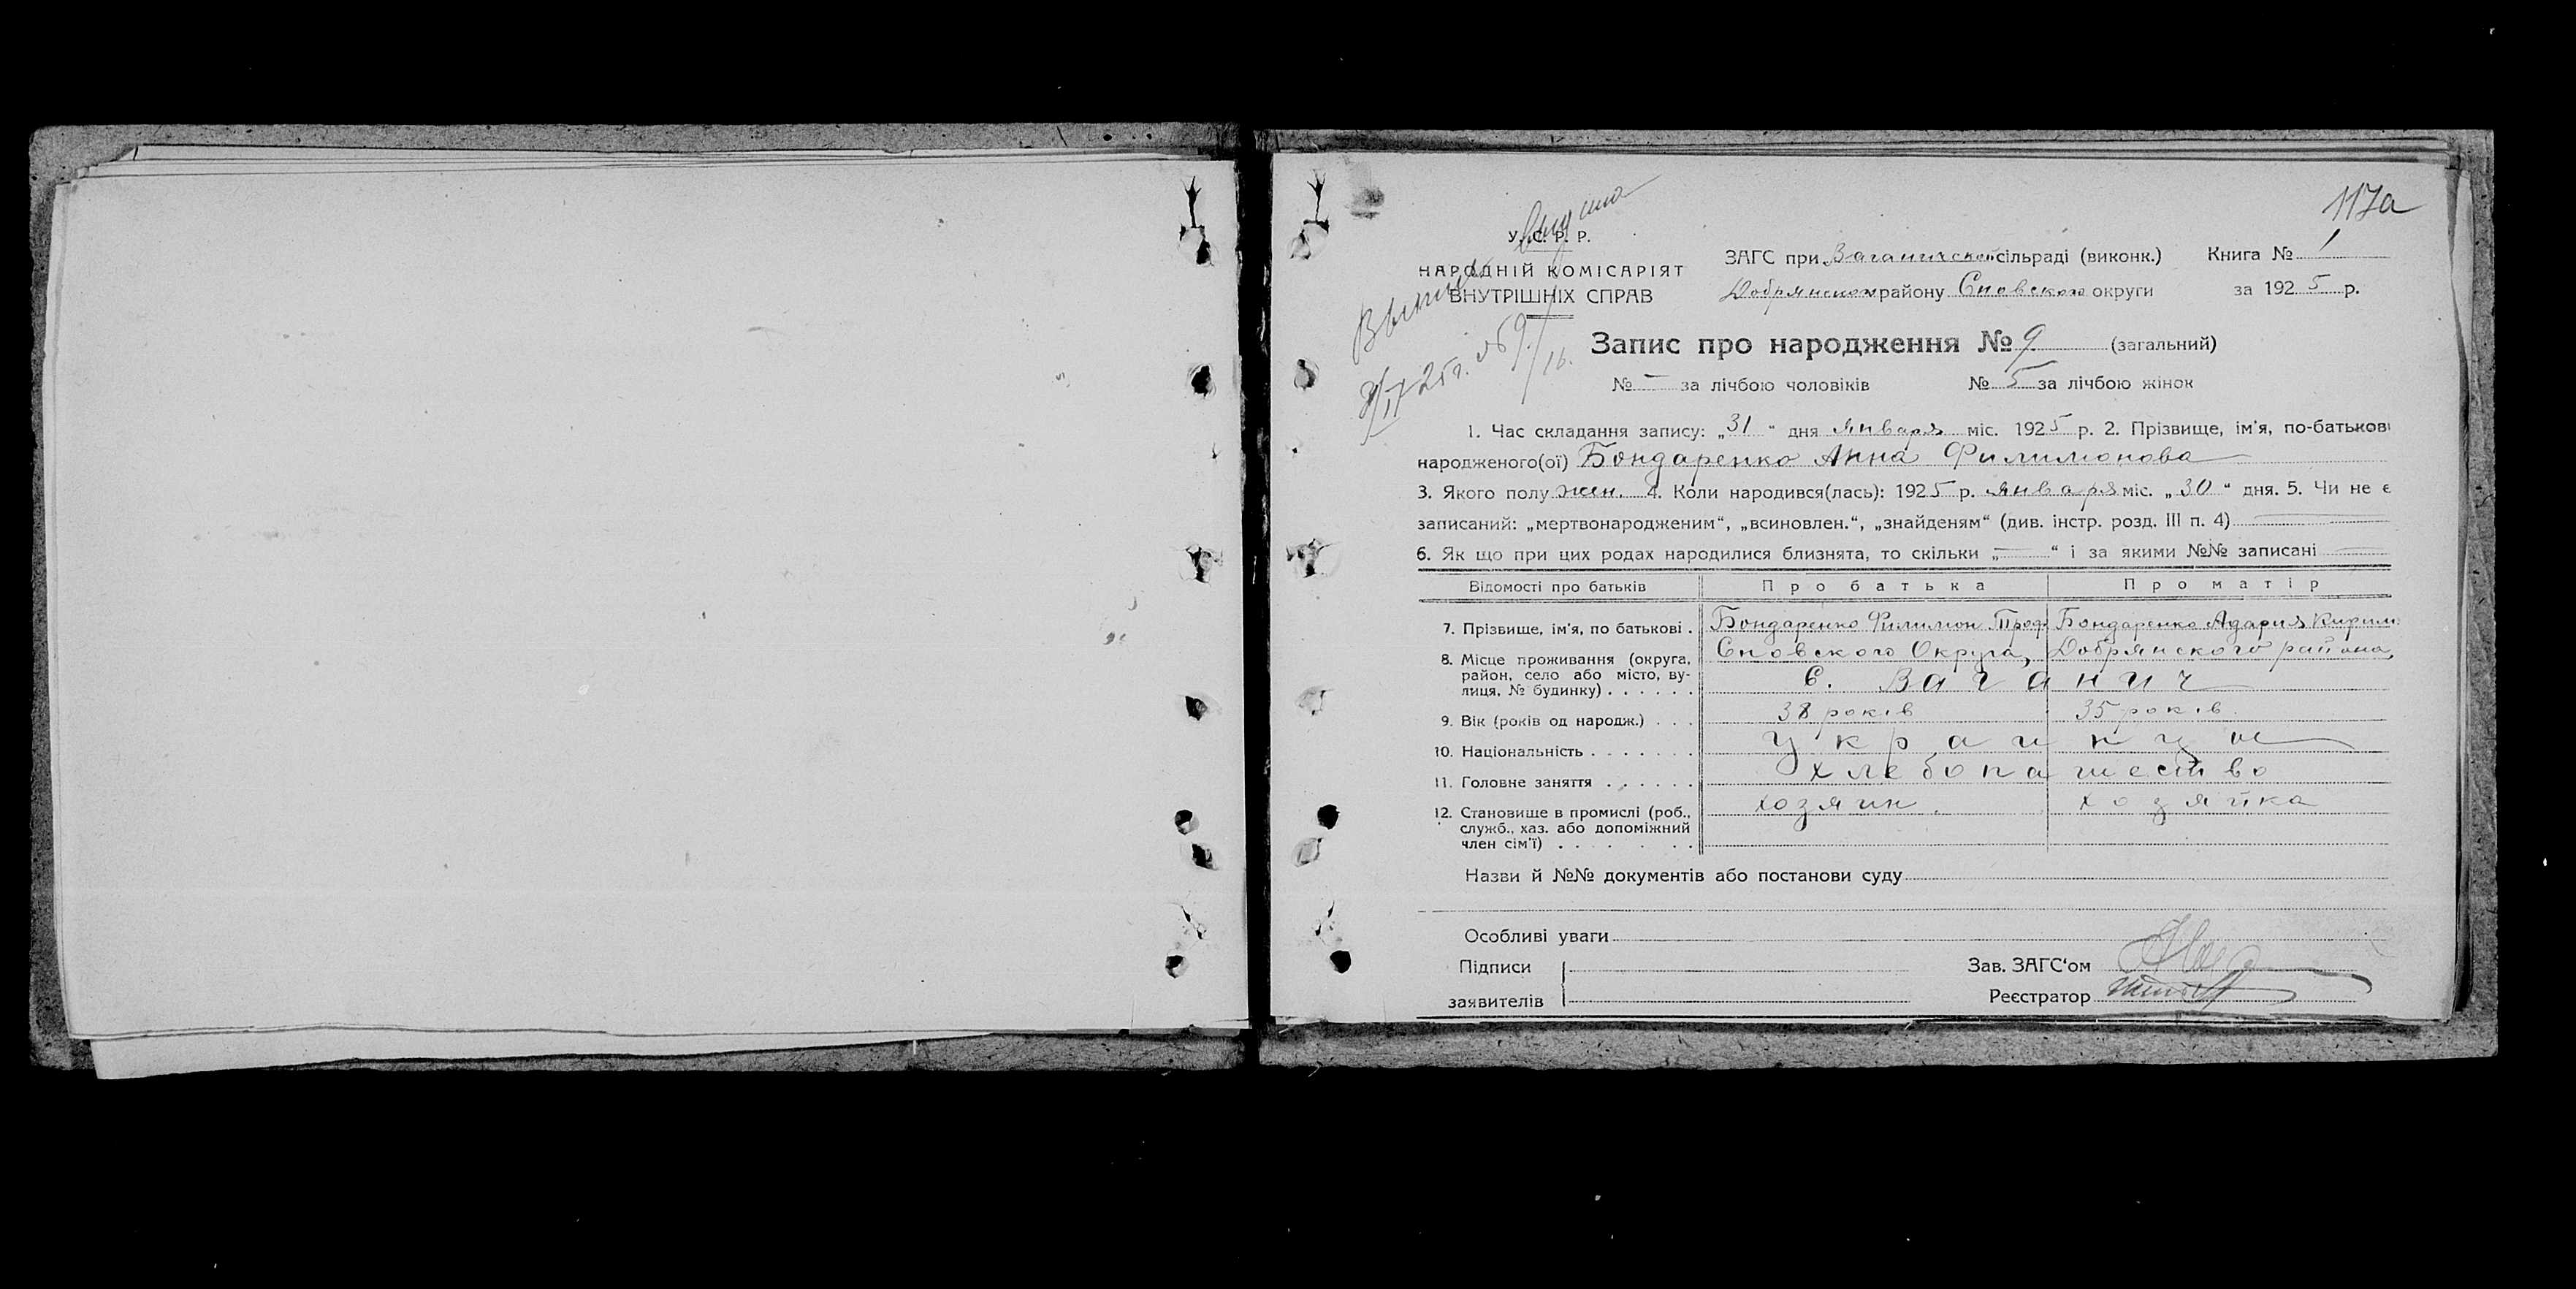 117а
Выпись выдана
3/IV 25 г. №9/16.
У. С. Р. Р.
НАРОДНІЙ КОМІСАРІЯТ
ВНУТРІШНІХ СПРАВ
ЗАГС при Ваганичской сільраді (виконк.) Книга № 1
Добрянском району Сновского округи за 1925 р.
Запис про народження № 9 (загальний)
№ — за лічбою чоловіків № 5 за лічбою жінок
1. Час складання запису: „31“ дня января міс. 1925 р. 2. Прізвище, ім'я, по-батькові
народженого(ої) Бондаренко Анна Филимонова
3. Якого полу жен. 4. Коли народився(лась): 1925 р. января міс. „30“ дня. 5. Чи не є
записаний: „мертвонародженим“, „всиновлен.“, „знайденям“ (див. інстр. розд. III п. 4) —
6. Як що при цих родах народилися близнята, то скільки „—“ і за якими №№ записані —
Відомості про батьків Про батька Про матір
7. Прізвище, ім'я, по батькові . Бондаренко Филимон Троф Бондаренко Адария Кирим
8. Місце проживання (округа, район, село або місто, ву-
лиця, № будинку) . . . . . . Сновского Округа, Добрянского района,
с. Ваганич
9. Вік (років од народж.) . . . 38 років 35 років
10. Національність . . . . . . . Украинцы
11. Головне заняття . . . . . . хлебопашество
12. Становище в промислі (роб., хозяин. хозяйка
служб., хаз. або допоміжний
член сім'ї) . . . . . . .
Назви й №№ документів або постанови суду
Особливі уваги
Підписи Зав. ЗАГС'ом
заявителів Реєстратор